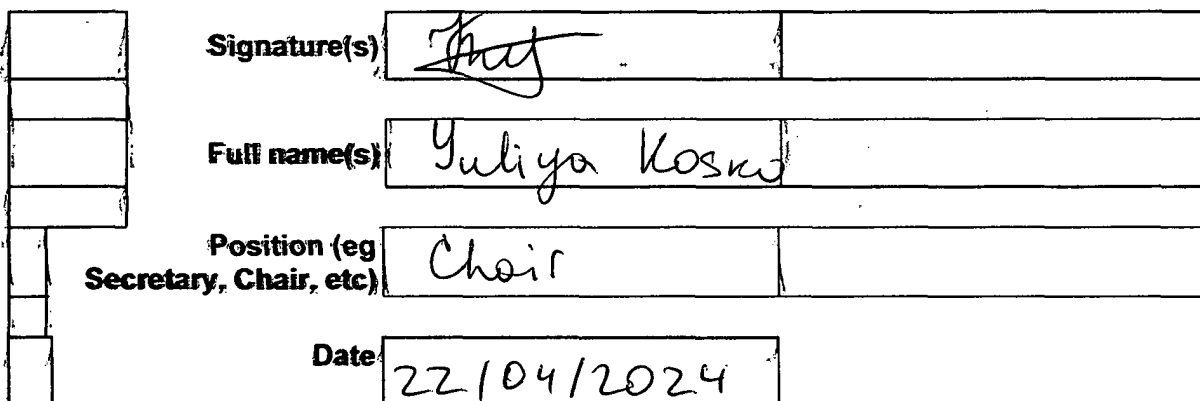 Signature(s)
Full name(s) Yuliya Kosko
Position (eg
Secretary, Chair, etc) Chair
Date 22/04/2024